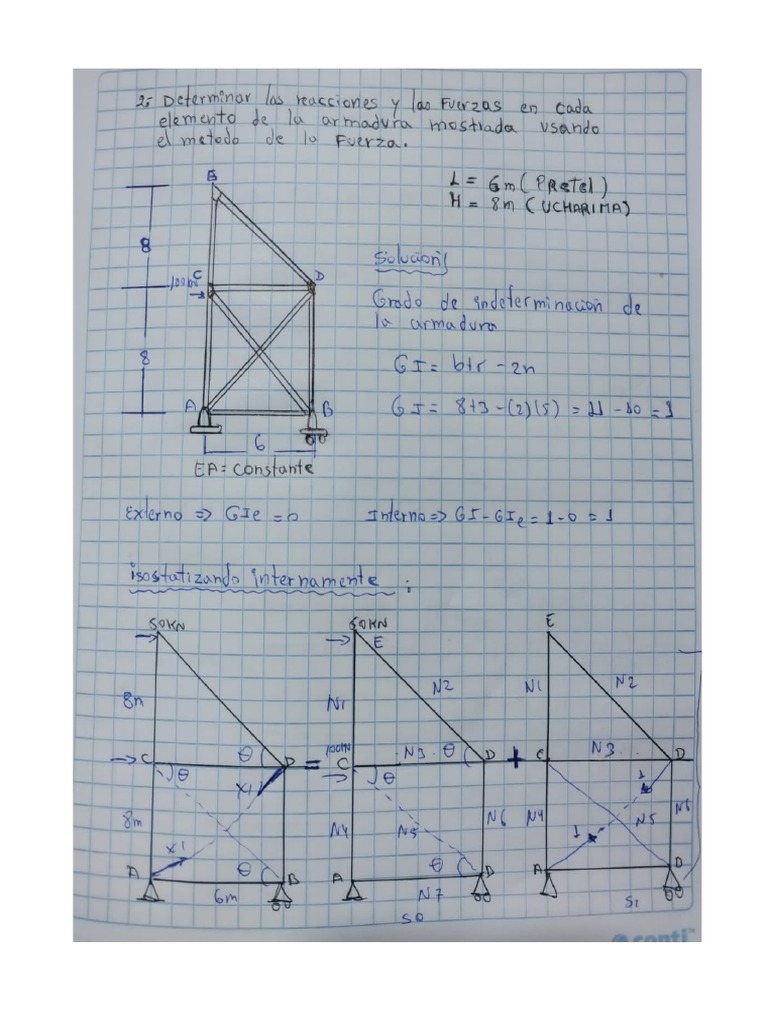 2.- Determinar las reacciones y las Fuerzas en cada
elemento de la armadura mostrada usando
el metodo de la Fuerza.
L = 6m (PRetel)
H = 8m (UCHARIMA)
8
C
D
100KN
8
A
B
6
EA = constante
Solucion
Grado de indeterminacion de
la armadura
GI = b+r - 2n
GI = 8+3 - (2)(5) = 11 - 10 = 1
Externo => GIe = 0
Interno => GI - GIe = 1 - 0 = 1
isostatizando internamente :
50KN
8m
C
θ
D
θ
X1
8m
X1
θ
A
B
6m
=
50KN
E
N1
N2
100KN
N3
θ
D
C
θ
N4
N5
N6
θ
A
D
N7
S0
+
E
N1
N2
C
N3
D
1
N4
N5
N6
1
A
D
S1
conti™